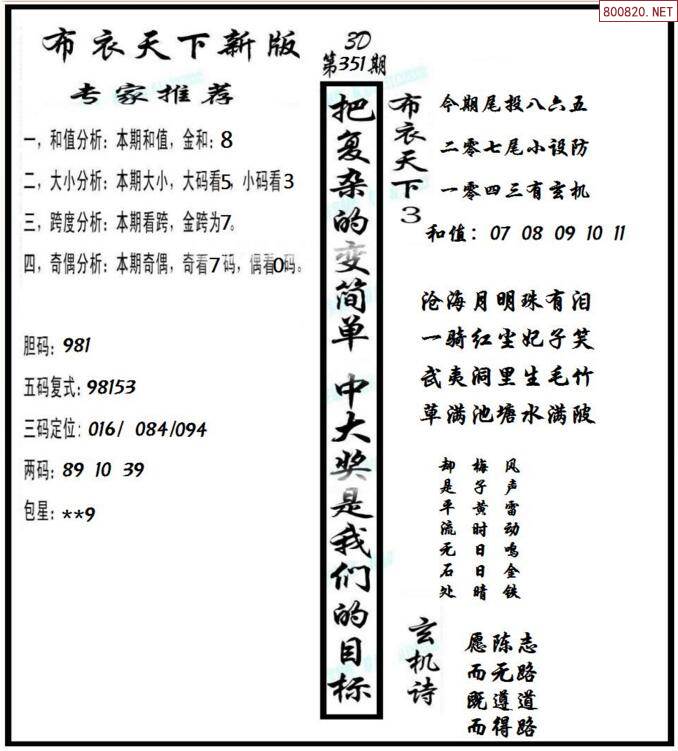 800820.NET
布衣天下新版
专家推荐
一，和值分析：本期和值，金和：8
二，大小分析：本期大小，大码看5，小码看3
三，跨度分析：本期看跨，金跨为7。
四，奇偶分析：本期奇偶，奇看7码，偶看0码。
胆码：981
五码复式：98153
三码定位：016/ 084/094
两码：89 10 39
包星：**9
3D
第351期
把复杂的变简单 中大奖是我们的目标
布衣天下3
今期尾投八六五
二零七尾小设防
一零四三有玄机
和值：07 08 09 10 11
沧海月明珠有泪
一骑红尘妃子笑
武夷洞里生毛竹
草满池塘水满陂
风声雷动鸣金铁
梅子黄时日日晴
却是平流无石处
玄机诗
愿陈志
而无路
既遵道
而得路